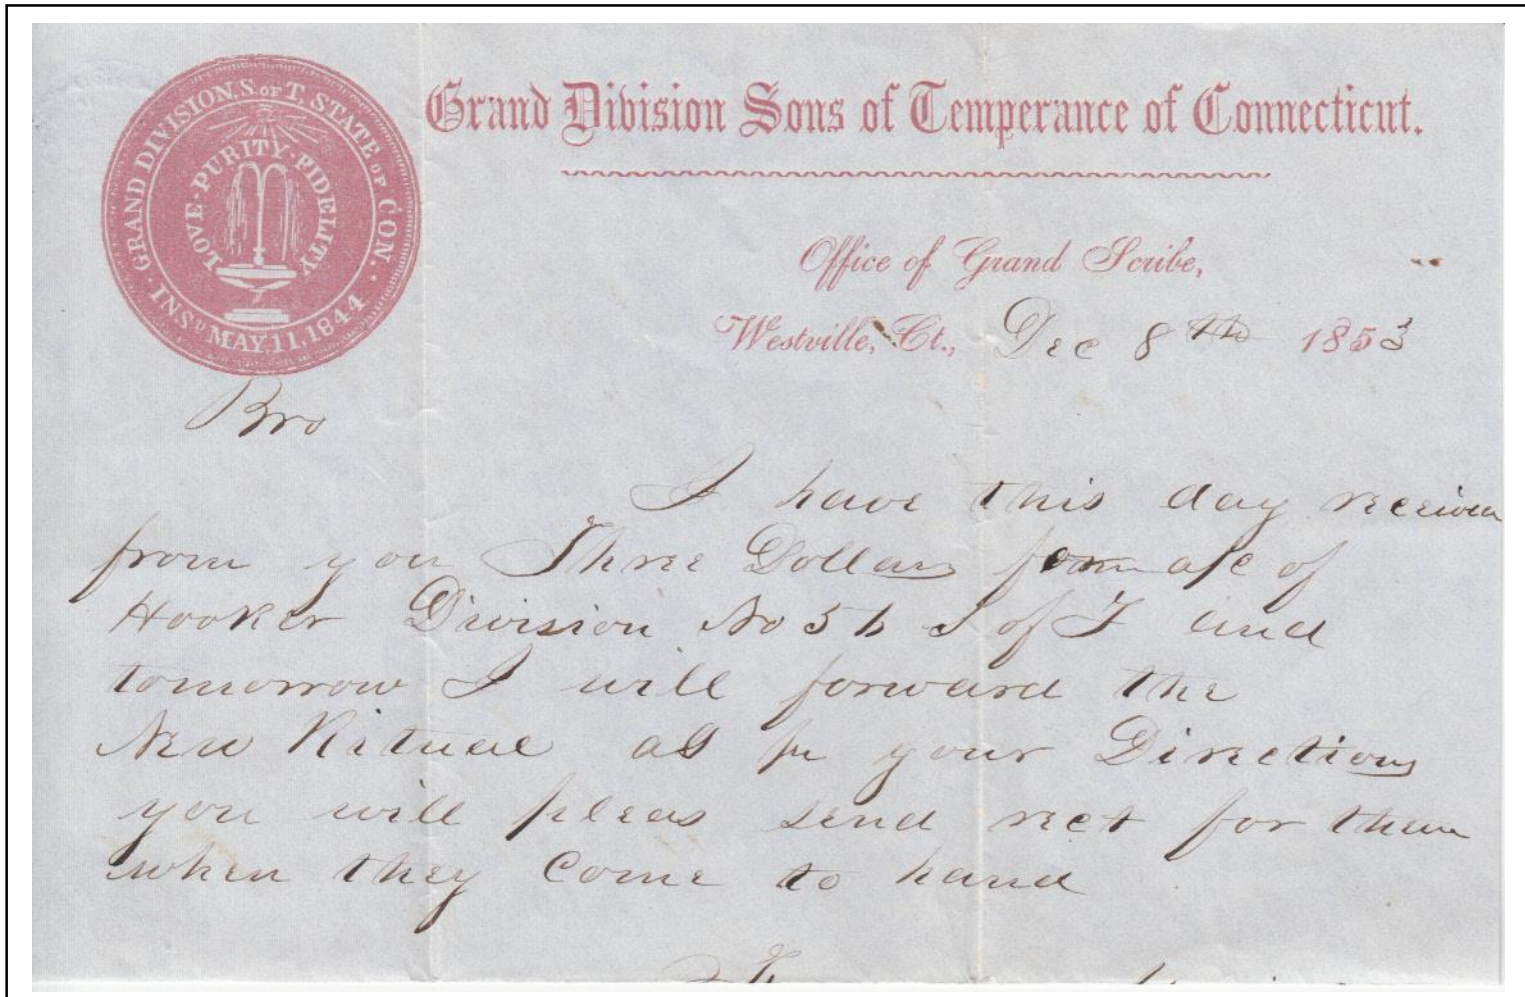 GRAND DIVISION, S. OF T, STATE OF CON.
INSD MAY, 11, 1844
LOVE · PURITY · FIDELITY
Grand Division Sons of Temperance of Connecticut.
Office of Grand Scribe,
Westville, Ct., Dec 8th 1853
Bro
I have this day
from you Three Dollars a/c of
Hooker Division No 5 S of T and
tomorrow I will forward the
New Ritual as pr your Directions
you will pleas send rect for them
when they Come to hand